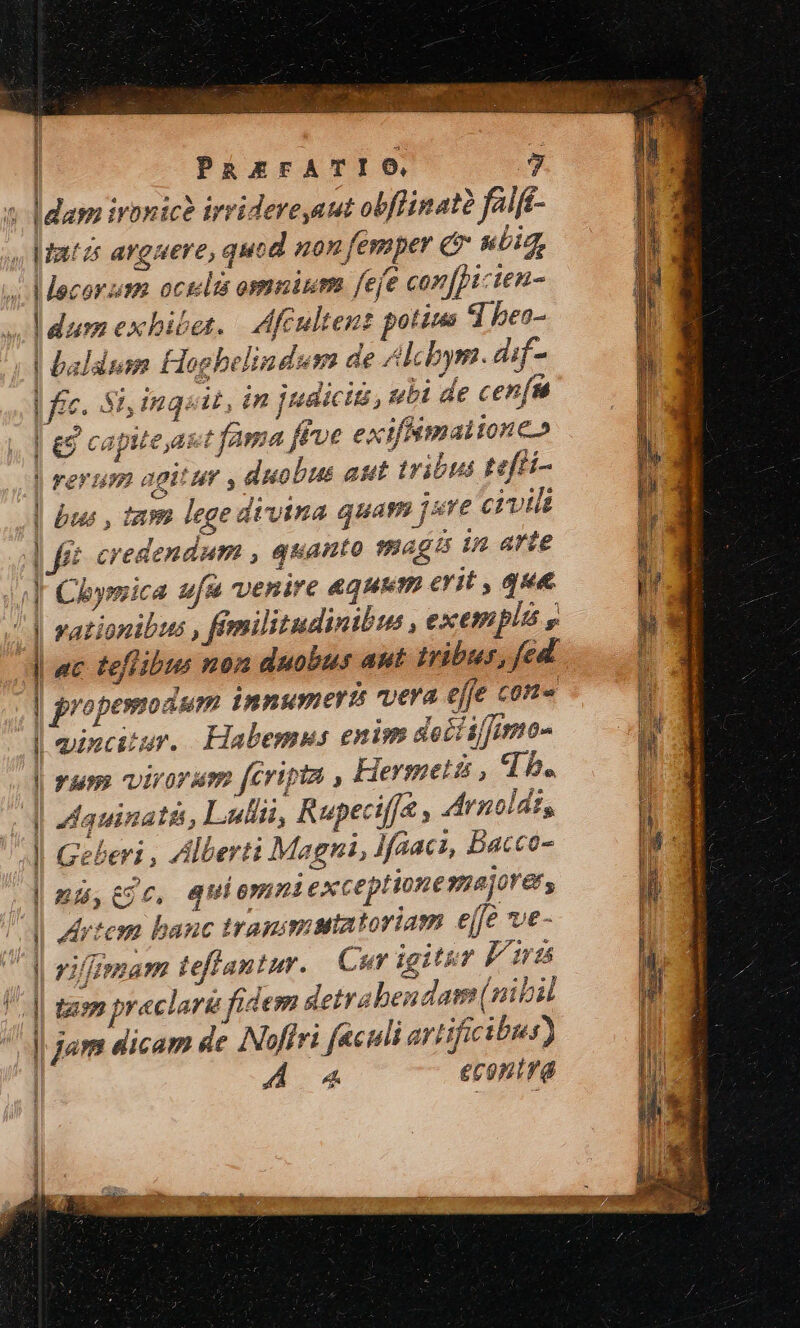 PRÆFATIO. 7
dam ironicè irridere, aut obſtinatè falſi-
tatis arguere, quod non ſemper & ubiq;
locorum oculis omnium ſeſe conſpicien-
dum exhibet. Aſcultent potius Theo-
baldum Hoghelindum de Alchym. dif-
fic. Si, inquit, in judiciis, ubi de cenſu
& capite, aut fama ſive exiſtimatione
rerum agitur, duobus aut tribus teſti-
bus, tam lege divina quam jure civili
ſit credendum, quanto magis in arte
Chymica uſu venire æquum erit, quæ
rationibus, ſimilitudinibus, exemplis,
ac teſtibus non duobus aut tribus, ſed
propemodum innumeris vera eſſe con-
vincitur. Habemus enim doctiſſimo-
rum virorum ſcripta, Hermetis, Th.
Aquinatis, Lullii, Rupeciſſæ, Arnoldi,
Geberi, Alberti Magni, Iſaaci, Bacco-
nis, &c. qui omni exceptione majores,
Artem hanc transmutatoriam eſſe ve-
riſſimam teſtantur. Cur igitur Viris
tam præclaris fidem detrahendam (nihil
jam dicam de Noſtri ſæculi artificibus)
A 4 econtra